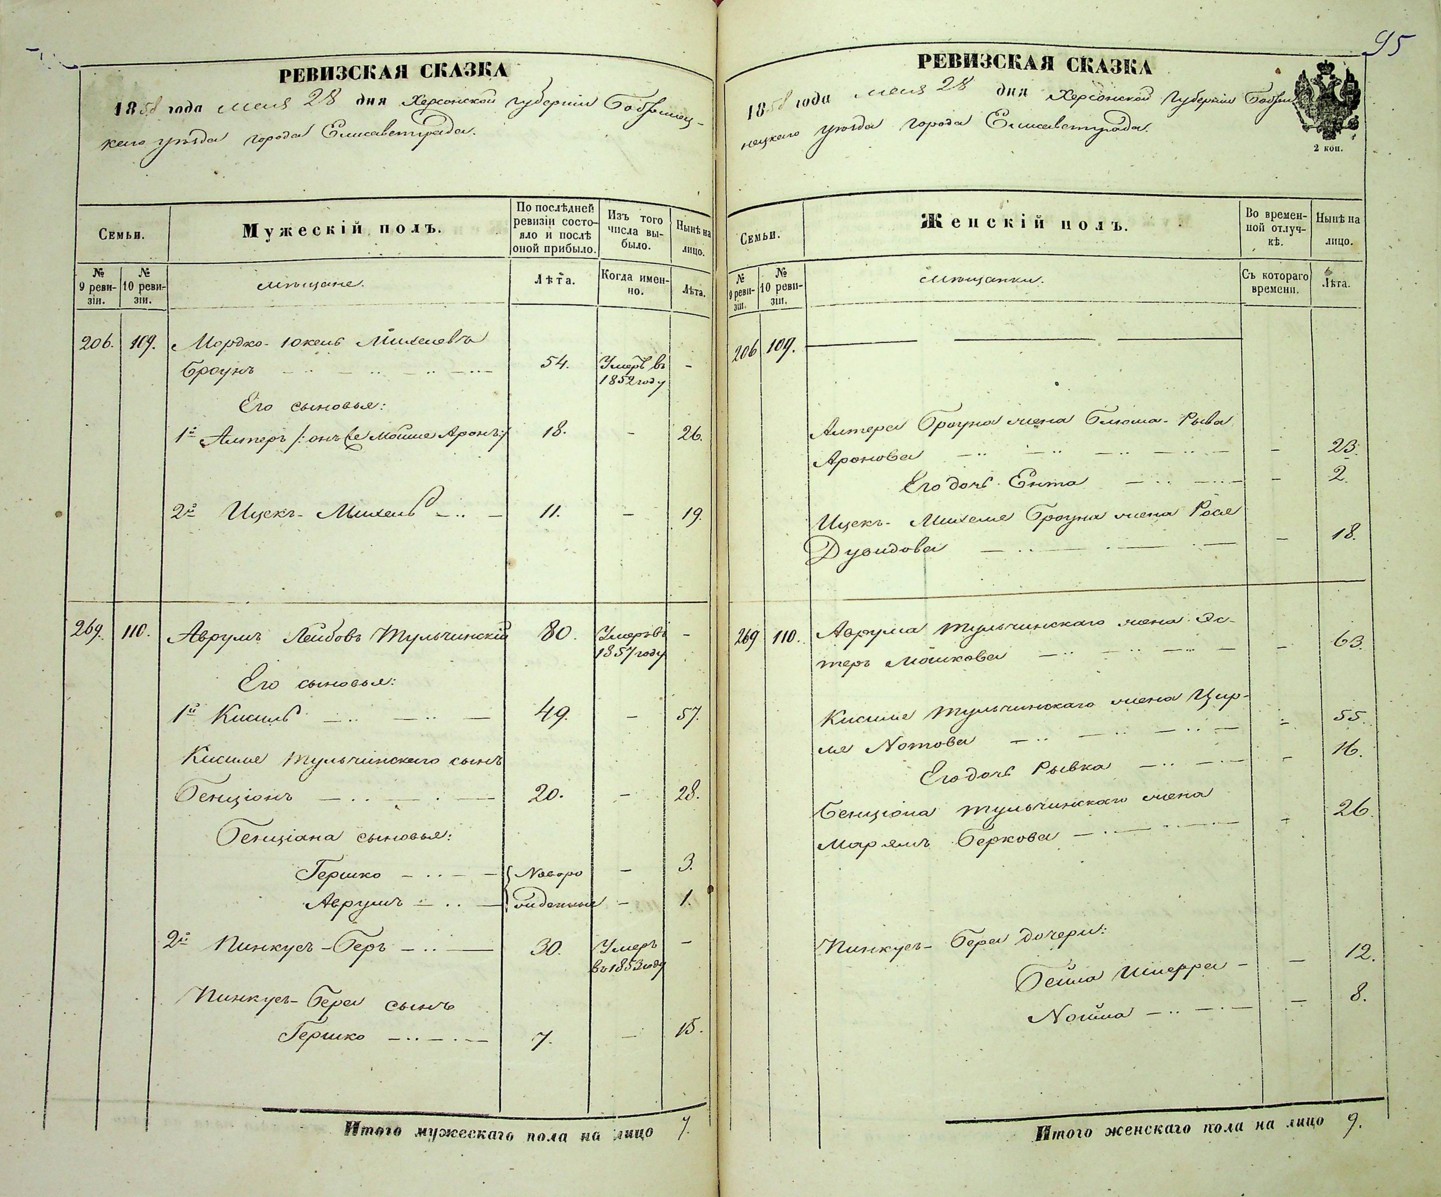 РЕВИЗСКАЯ СКАЗКА
1858 года мая 28 дня Херсонской Губерніи Бобринец-
каго уѣзда города Елисаветграда.
Семьи.
Мужескій полъ.
По послѣдней ревизіи состояло и послѣ оной прибыло.
Изъ того числа выбыло.
Нынѣ на лицо.
№ 9 ревизіи.
№ 10 ревизіи.
мѣщане.
Лѣта.
Когда именно.
Лѣта.
206. 109. Мордко-Юкель Михелевъ
Броунъ 54. Умеръ въ 1852 году -
Его сыновья:
1й Алтеръ /: онъ же Мошке Аронъ:/ 18. - 26.
2й Ицекъ-Михель 11. - 19.
269. 110. Аврумъ Лейбовъ Тульчинскій 80. Умеръ въ 1857 году -
Его сыновья:
1й Кисиль 49. - 57.
Кисиля Тульчинскаго сынъ
Бенціонъ 20. - 28.
Бенціона сыновья:
Гершко Новоро - 3.
Аврумъ жденный - 1.
2й Пинкусъ-Беръ 30. Умеръ въ 1853 году -
Пинкусъ-Бера сынъ
Гершко 7. - 15.
Итого мужескаго пола на лицо 7.
95
РЕВИЗСКАЯ СКАЗКА
1858 года мая 28 дня Херсонской Губерніи Бобри
нецкаго уѣзда города Елисаветграда.
2 коп.
Семьи.
Женскій полъ.
Во временной отлучкѣ.
Нынѣ на лицо.
№ 9 ревизіи.
№ 10 ревизіи.
мѣщанки.
Съ котораго времени.
Лѣта.
206 109.
Алтера Броуна жена Блюма-Рыва
Аронова - 23.
Его дочь Ента - 2.
Ицекъ-Михеля Броуна жена Рося
Дувидова - 18.
269 110. Аврума Тульчинскаго жена Эс-
теръ Мошкова - 63.
Кисиля Тульчинскаго жена Цир-
ля Нотова - 55.
Его дочь Рывка - 16.
Бенціона Тульчинскаго жена
Марьямъ Беркова - 26.
Пинкусъ-Бера дочери:
Бейла - 12.
- 8.
Итого женскаго пола на лицо 9.